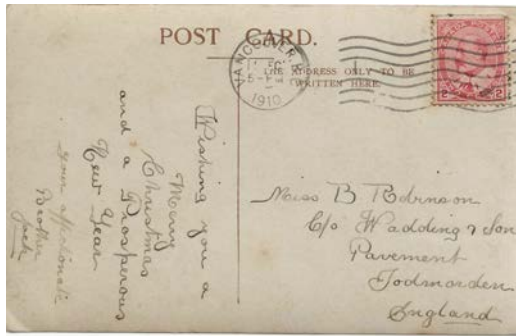 POST CARD.
VANCOUVER, B.
1910
THE ADDRESS ONLY TO BE
WRITTEN HERE.
Wishing you a
Merry
Christmas
and a Prosperous
New Year
your affectionate
Brother
Jack
Miss B Robinson
C/o Wadding & Son
Pavement
Todmorden
England
2 2